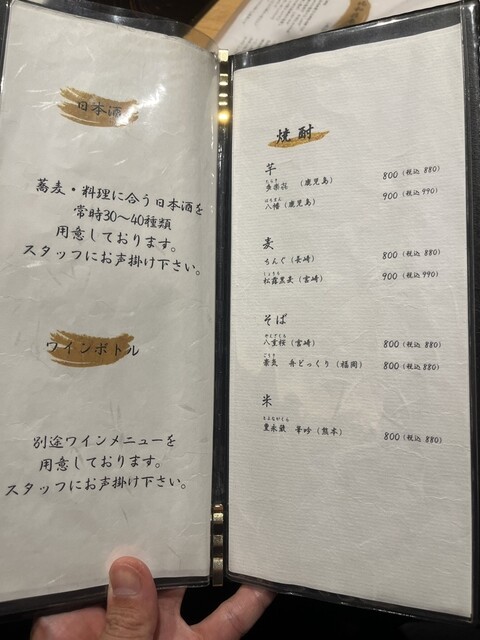 日本酒
蕎麦・料理に合う日本酒を
常時30〜40種類
用意しております。
スタッフにお声掛け下さい。
ワインボトル
別途ワインメニューを
用意しております。
スタッフにお声掛け下さい。
焼酎
芋
(鹿児島) 800(税込 880)
はちまん
八幡(鹿児島) 900(税込 990)
麦
ちんぐ(長崎) 800(税込 880)
松露黒麦(宮崎) 900(税込 990)
そば
八重桜(宮崎) 800(税込 880)
ごうき
豪気 舟どっくり(福岡) 800(税込 880)
米
とよながくら
豊永蔵 華吟(熊本) 800(税込 880)